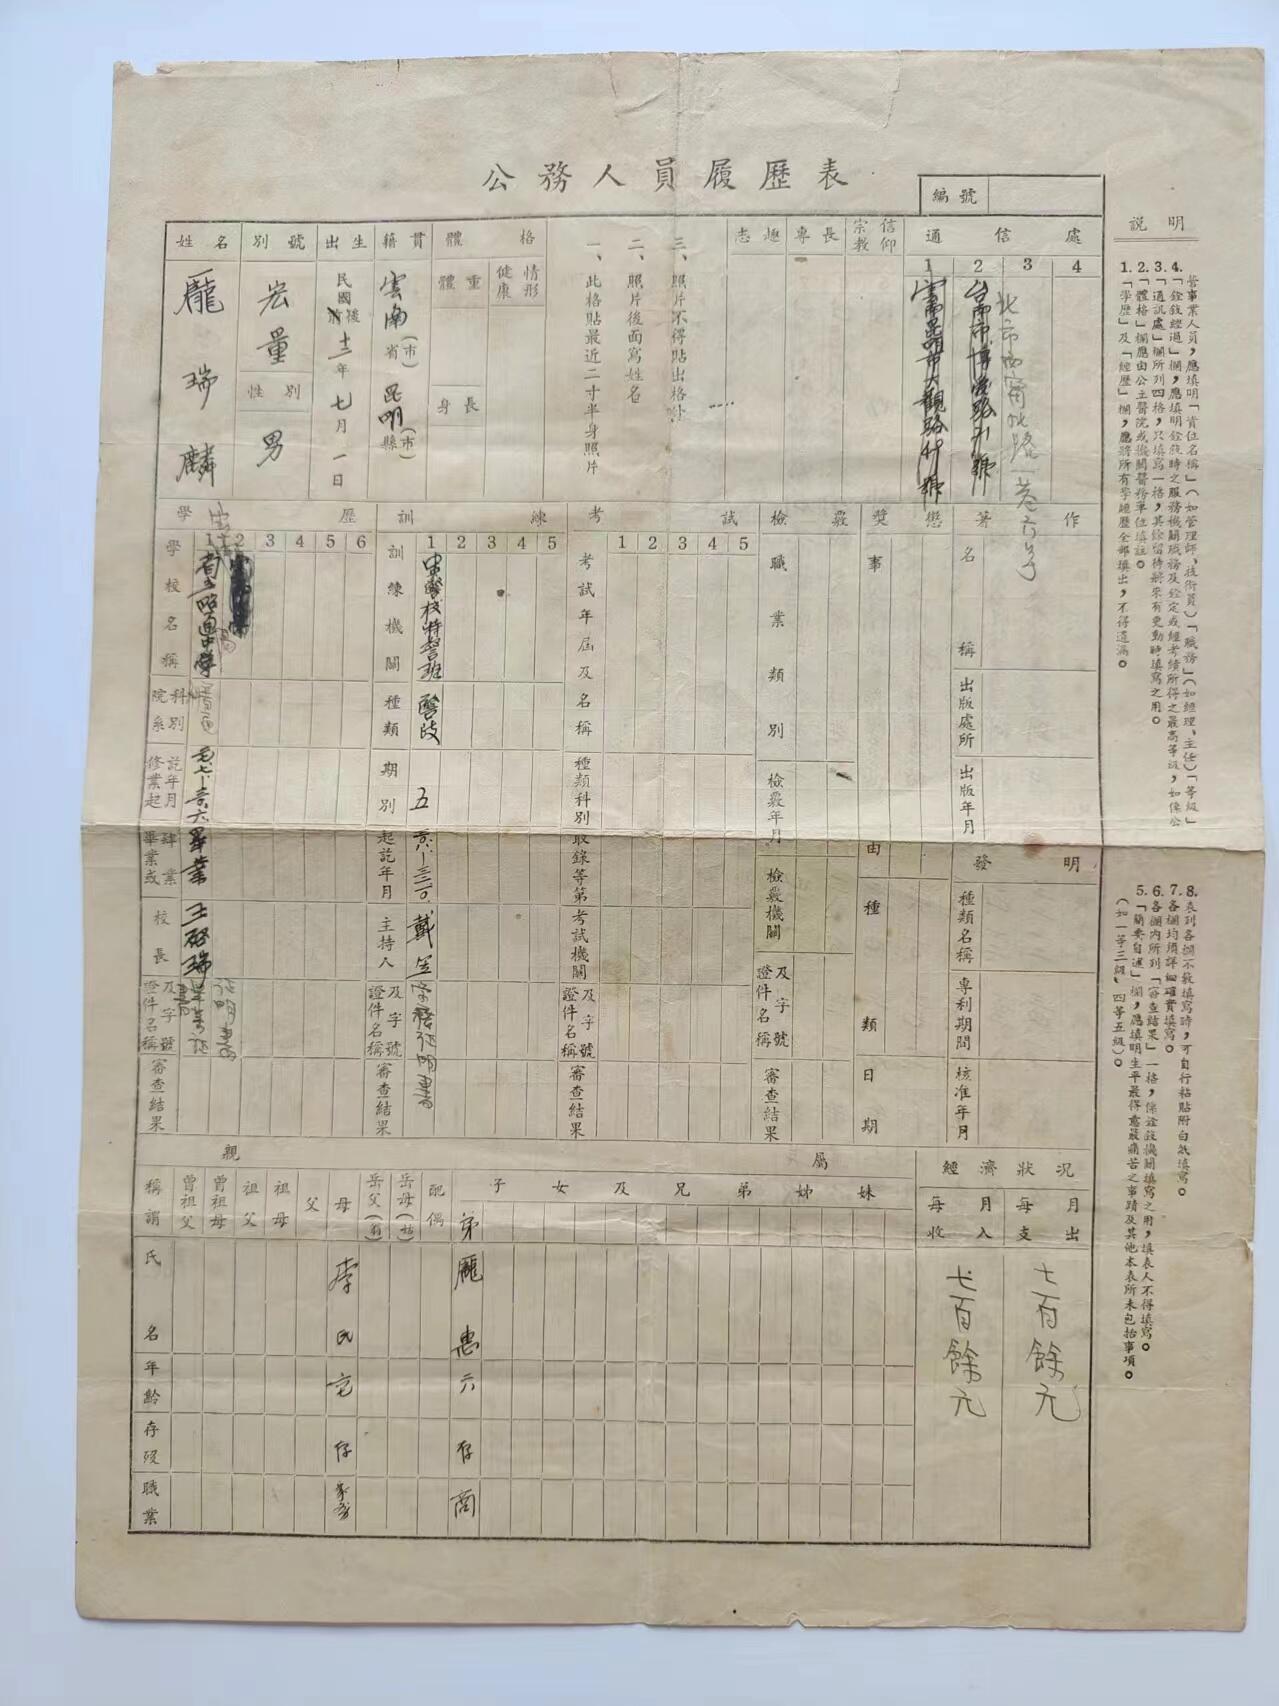 公務人員履歷表
編號
姓名
龐瑞麟
別號
宏量
性別
男
出生
民國前後十二年七月一日
籍貫
雲南省(市)昆明縣(市)
體格
體重
健康情形
身長
一、此格貼最近二寸半身照片
二、照片後面寫姓名
三、照片不得貼出格外
志趣
專長
宗教信仰
通信處
1
雲南昆明市大觀路
2
台南市博愛路
3
北市
4
學歷
1 2 3 4 5 6
學校名稱
省立昭通中學
院科系別
修業起訖年月
畢業或肄業
畢業
校長
王啓瑞
證件名稱及字號
證明書
審查結果
訓練
1 2 3 4 5
訓練機關
中警校特警班
種類
警政
期別
五
起訖年月
主持人
戴笠
證件名稱及字號
證明書
審查結果
考試
1 2 3 4 5
考試年屆及名稱
種類科別
收錄等第
考試機關
證件名稱及字號
審查結果
檢覈
職業類別
檢覈年月
檢覈機關
證件名稱及字號
審查結果
獎懲
事由
種類
日期
著作
名稱
出版處所
出版年月
發明
種類名稱
專利期間
核准年月
親屬
稱謂
曾祖父
曾祖母
祖父
祖母
父
母
岳父(翁)
岳母(姑)
配偶
子女及兄弟姊妹
弟
氏名
李氏
龐惠
年齡
六
存歿
存
存
職業
家務
商
經濟狀況
每月收入
七百餘元
每月支出
七百餘元
說明
1.「學歷」及「經歷」欄，應將所有學經歷全部填出，不得遺漏。
2.「體格」欄應由公立醫院或機關醫務單位填註。
3.「通訊處」欄所列四格，只填寫一格，其餘留待將來有更動時填寫之用。
4.「銓敘經過」欄，應填明銓敘時之服務機關職務及銓定或經考績所得之最高等級，如係公
營事業人員，應填明「資位名稱」(如管理師、技術員)「職務」(如經理、主任)「等級」
(如一等三級、四等五級)。
5.「簡要自述」欄，應填明生平最得意最痛苦之事蹟及其他本表所未包括事項。
6.各欄內所列「審查結果」一格，係銓敘機關填寫之用，填表人不得填寫。
7.各欄均須詳細確實填寫。
8.表列各欄不敷填寫時，可自行粘貼附白紙填寫。